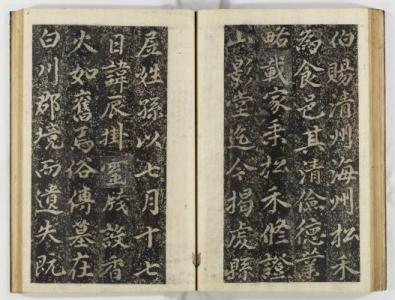 伯賜清州海州松禾
為食邑其清儉德業
略載家乗松禾修證
山影堂迄今揭處縣
居姓孫以七月十七
日諱辰掛靈戚設香
火如舊焉俗傳墓在
白川郡境而遺失既